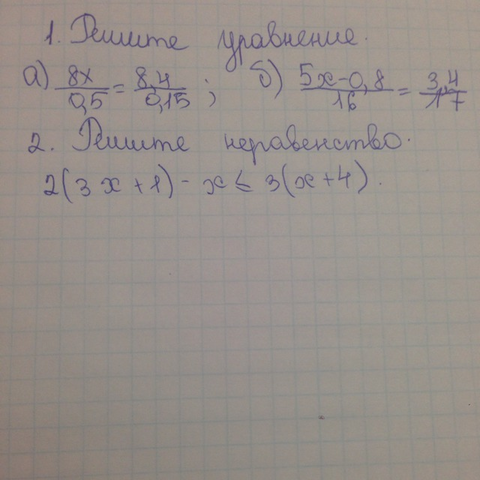 1. Решите уравнение.
а) 8x/0,5 = 8,4/0,15 ; б) 5x-0,8/16 = 3,4/17
2. Решите неравенство.
2(3x+1)-x ≤ 3(x+4).